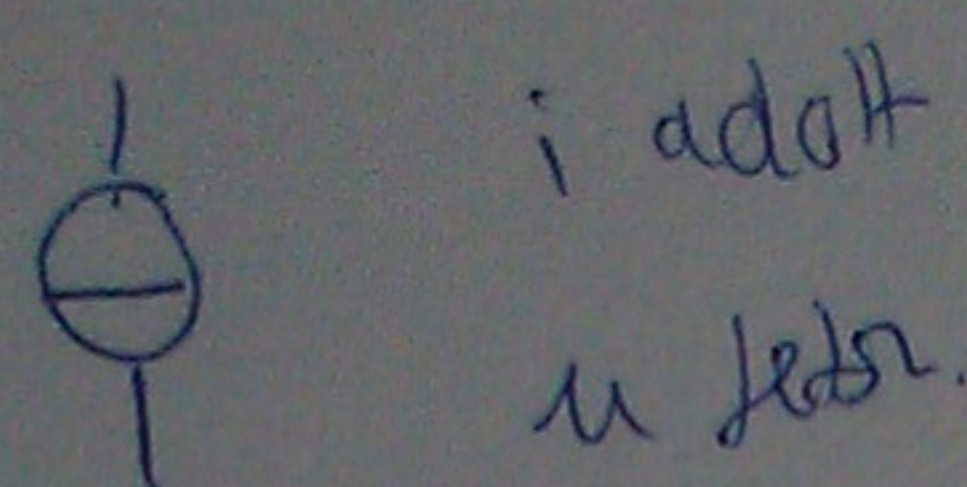 i adott
u tetsz.